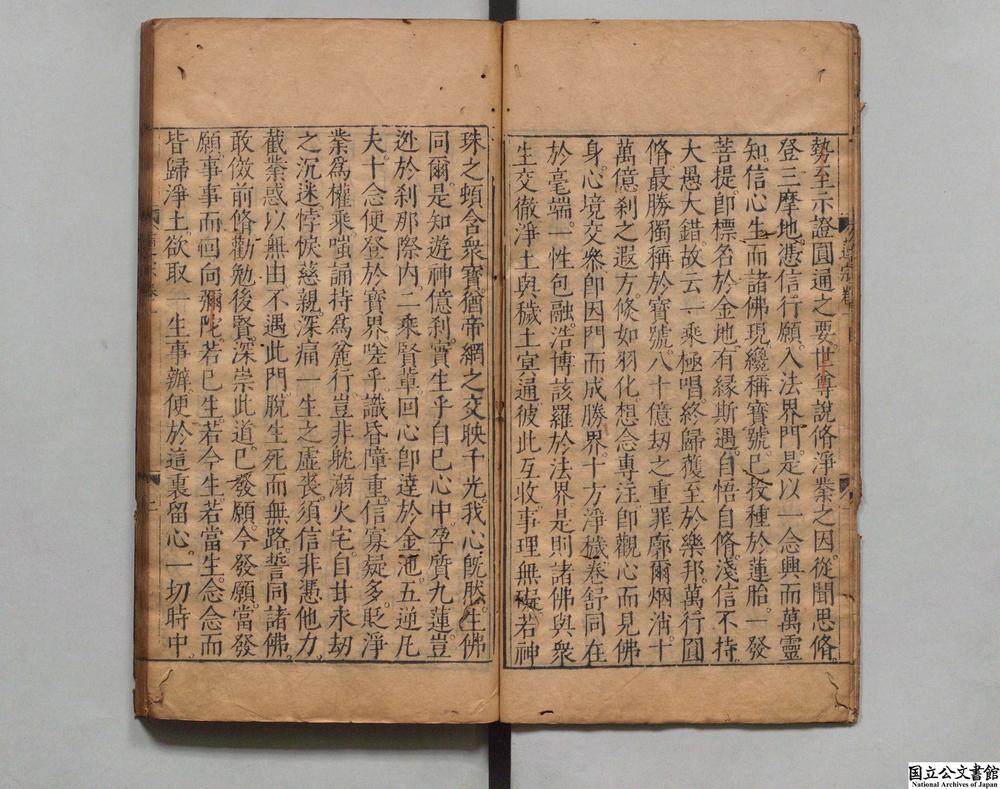 勢至示證圓通之要。世尊說脩淨業之因。從聞思脩。
登三摩地。憑信行願。入法界門。是以一念興而萬靈
知。信心生而諸佛現。纔稱寶號。已投種於蓮胎。一發
菩提。卽標名於金地。有緣斯遇。自悟自脩。淺信不持。
大愚大錯。故云一乘極唱。終歸㨿至於樂邦。萬行圓
脩。最勝獨稱於寶號。八十億劫之重罪廓爾烟消。十
萬億刹之遐方。倐如羽化。想念專注。卽觀心而見佛
身。心境交叅。卽因門而成勝界。十方淨穢。卷舒同在
於毫端。一性包融。浩博該羅於法界。是則諸佛與衆
生交徹。淨土與穢土㝠通。彼此互收。事理無礙。若神
珠之頓含衆寶。猶帝網之交映千光。我心旣然。生佛
同爾。是知遊神億刹。實生乎自己心中。孕質九蓮。豈
逃於刹那際內。二乘賢輩。回心卽達於金池。五逆凡
夫。十念便登於寶界。嗟乎。識昏障重。信寡疑多。貶淨
業爲權乘。嗤誦持爲麄行。豈非躭溺火宅。自甘永劫
之沉迷。悖悷慈親。深痛一生之虛喪。須信非憑他力。
截業惑以無由。不遇此門。脫生死而無路。誓同諸佛。
敢傚前脩。勸勉後賢。深崇此道。已發願。今發願。當發
願。事事而回向彌陀。若已生。若今生。若當生。念念而
皆歸淨土。欲取一生事辦。便於這裏留心。一切時中
国立公文書館
National Archives of Japan